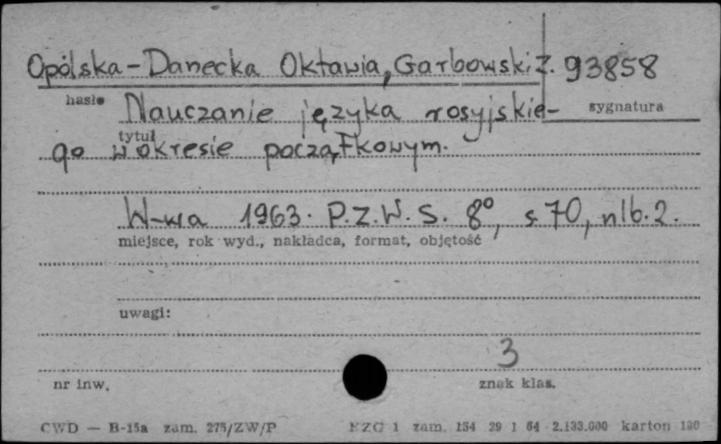 Opólska-Danecka Oktawia, Garbowski Z. 93858
hasło sygnatura
Nauczanie języka rosyjskie-
tytuł
go w okresie początkowym.
W-wa 1963. P.Z.W.S. 8°, s. 70, nlb. 2.
miejsce, rok wyd., nakładca, format, objętość
uwagi:
3
nr inw. znak klas.
CWD — B-15a zam. 275/ZW/P NZG 1 zam. 154 29 1 64 2.133.000 karton